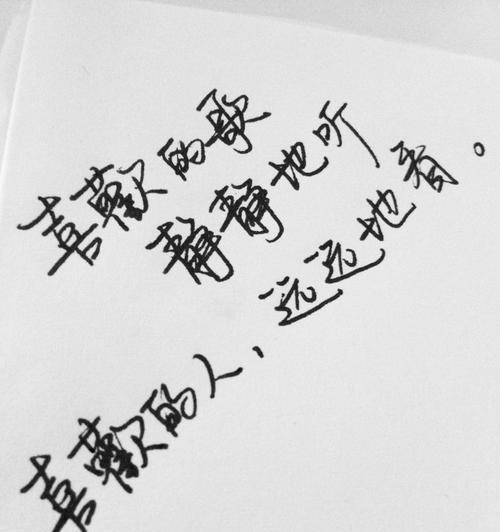 喜歡的歌
静静地听
喜歡的人,
远远地看。